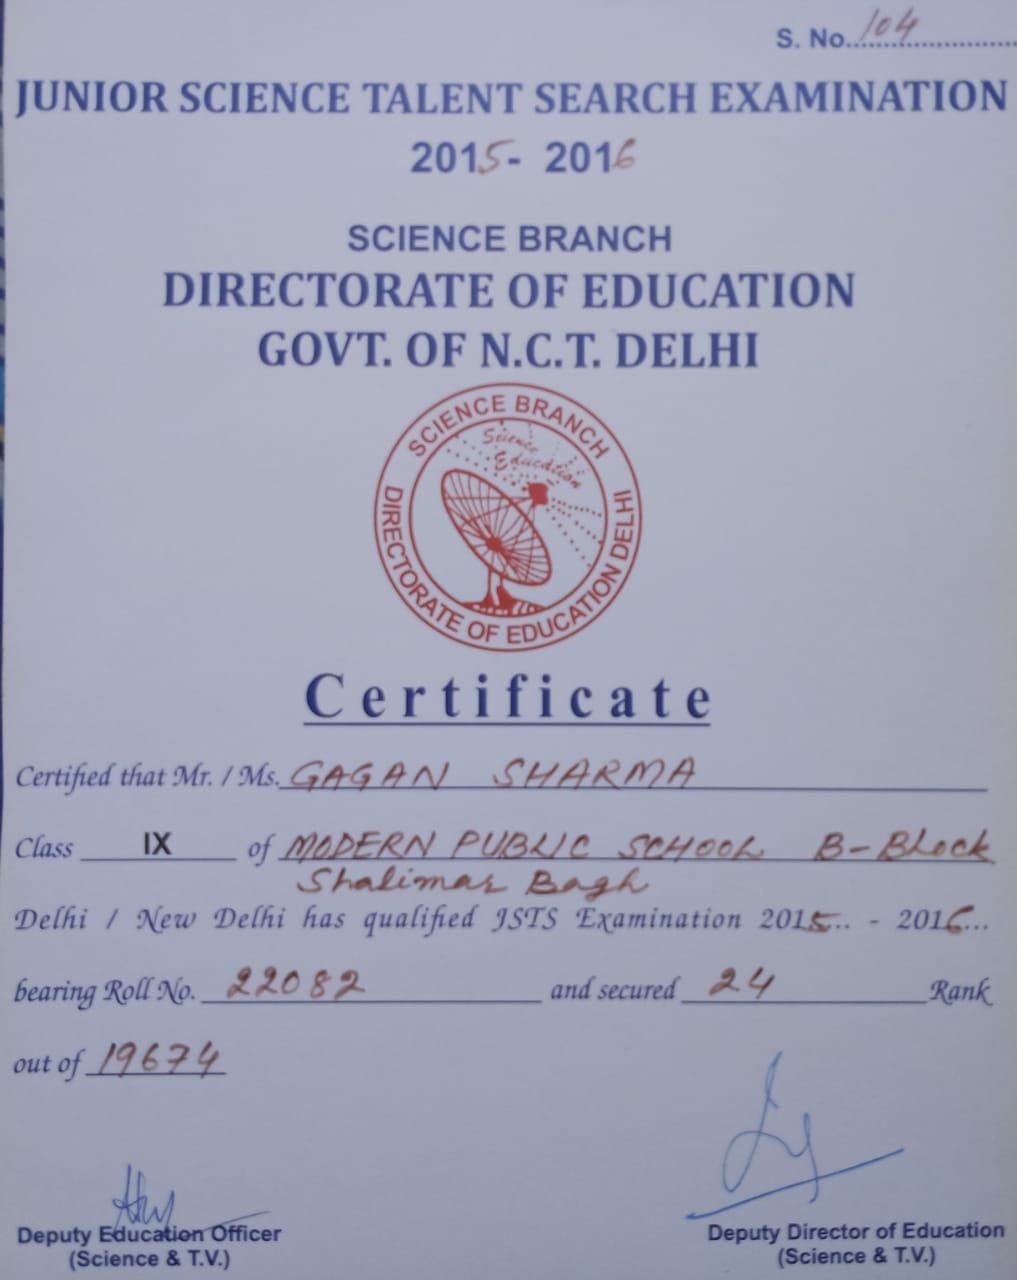 S. No. 104
JUNIOR SCIENCE TALENT SEARCH EXAMINATION
2015- 2016
SCIENCE BRANCH
DIRECTORATE OF EDUCATION
GOVT. OF N.C.T. DELHI
SCIENCE BRANCH
Science
Education
DIRECTORATE OF EDUCATION DELHI
Certificate
Certified that Mr. / Ms. GAGAN SHARMA
Class IX of MODERN PUBLIC SCHOOL B-Block
Shalimar Bagh
Delhi / New Delhi has qualified JSTS Examination 2015.. - 2016...
bearing Roll No. 22082 and secured 24 Rank
out of 19674
Deputy Education Officer
(Science & T.V.)
Deputy Director of Education
(Science & T.V.)